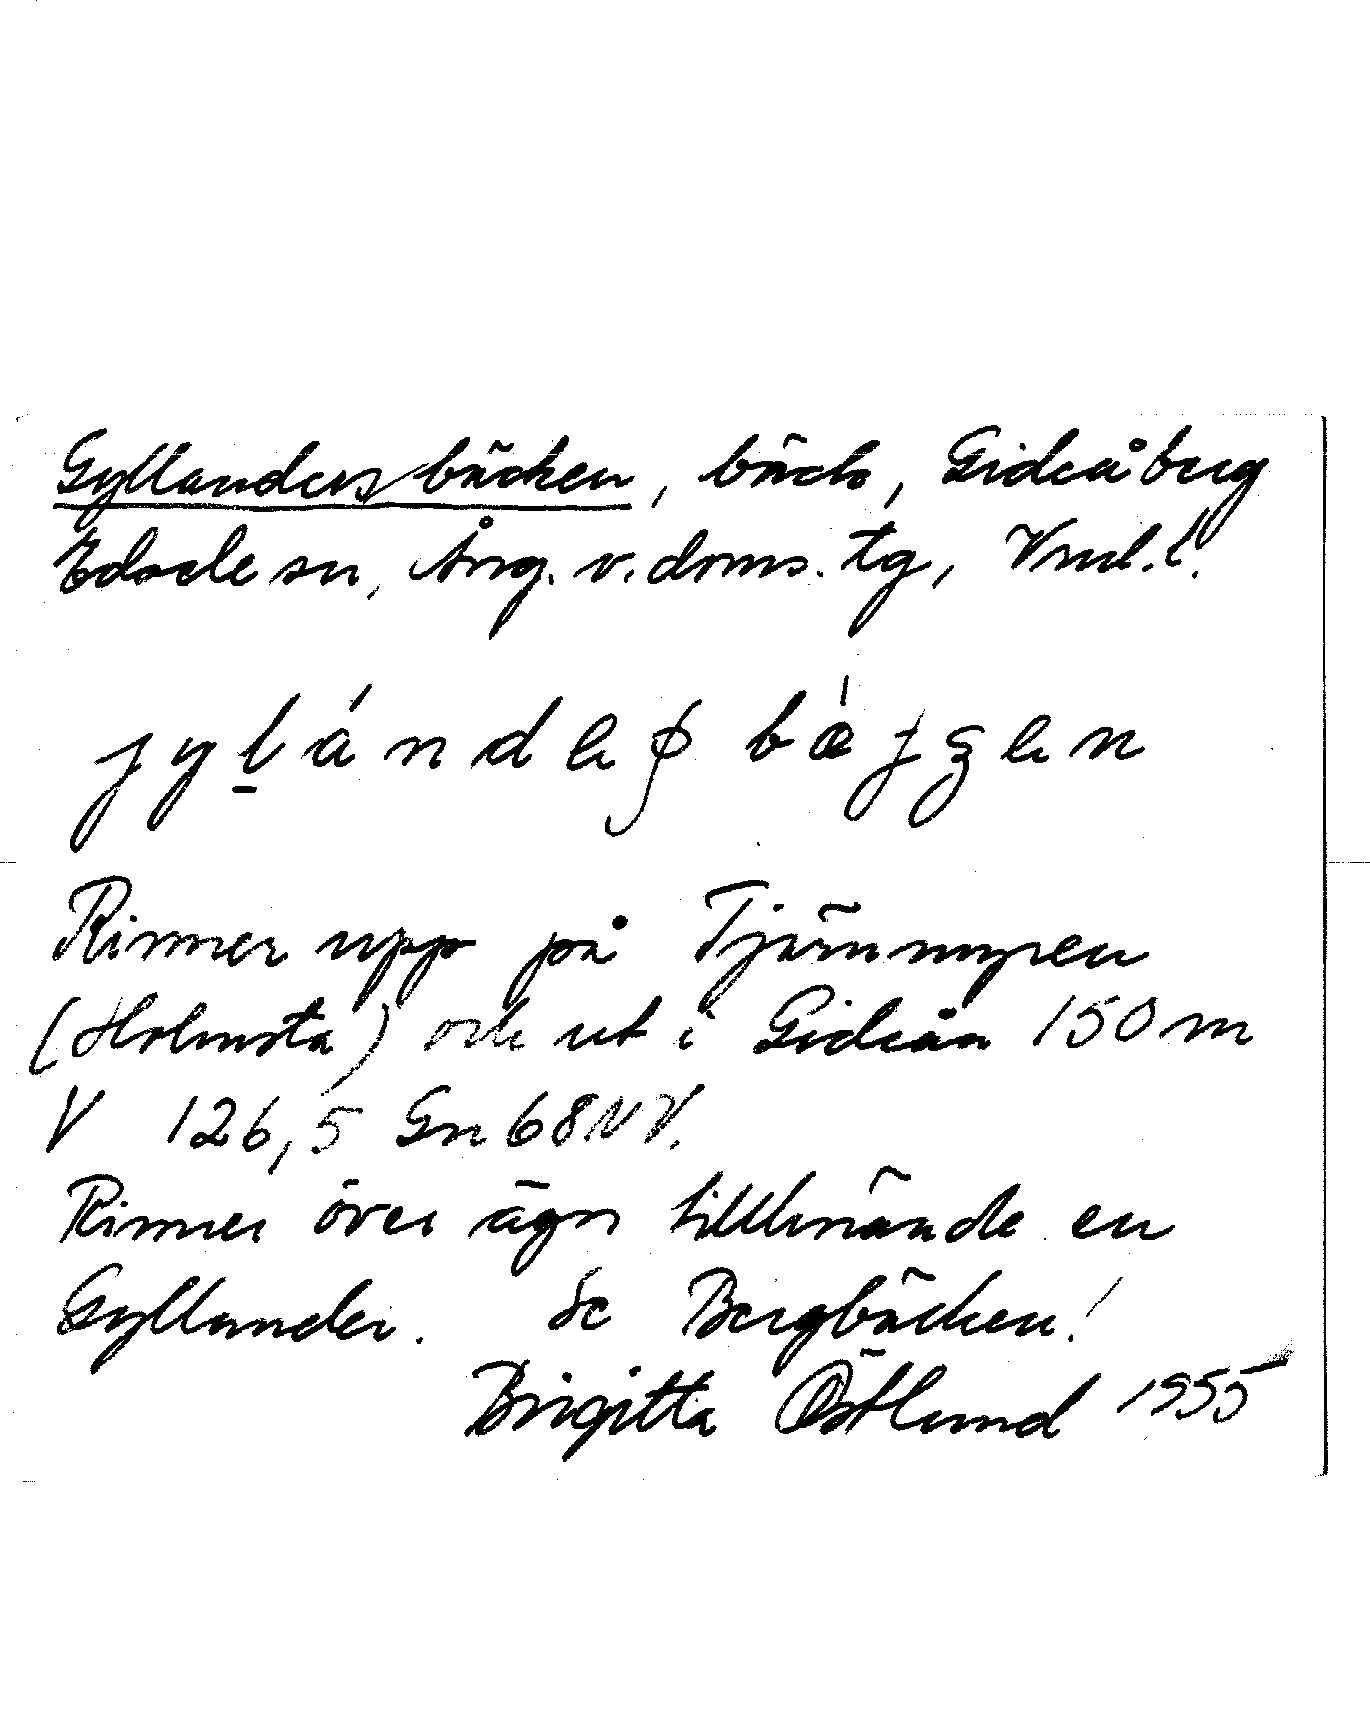 Gyllandersbäcken, bäck, Gideåberg
Edsele sn, Ång. v. doms. tg, Vnl. l.
jylánde bæjgen
Rinner upp på Tjärnmyren
(Holmsta) och ut i Gideån 150 m
V 126,5 Gn 68 NV.
Rinner över ägor tillhörande en
Gyllander. Se Bergbäcken!
Birgitta Östlund 1955